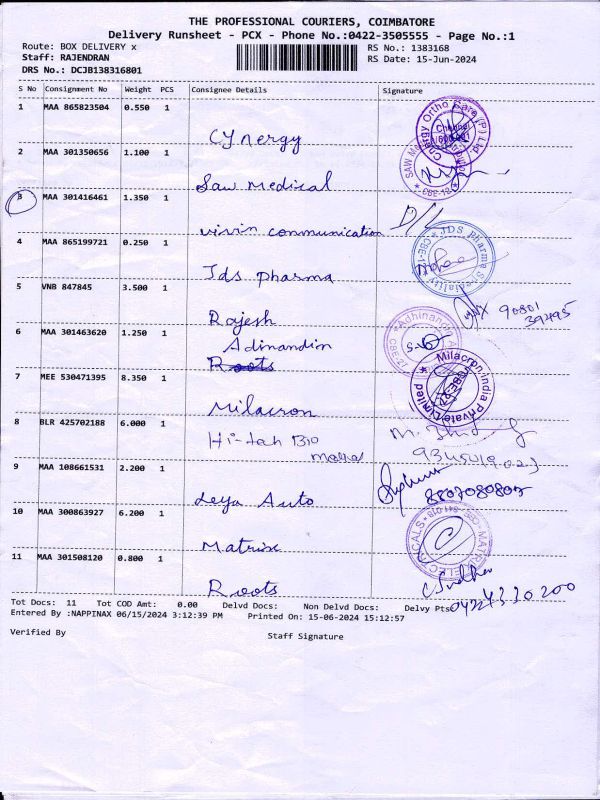 THE PROFESSIONAL COURIERS, COIMBATORE
Delivery Runsheet - PCX - Phone No.:0422-3505555 - Page No.:1
Route: BOX DELIVERY x
RS No.: 1383168
Staff: RAJENDRAN
RS Date: 15-Jun-2024
DRS No.: DCJB138316801
S No Consignment No Weight PCS Consignee Details Signature
1 MAA 865823504 0.550 1
Cynergy
2 MAA 301350656 1.100 1
Saw Medical
3 MAA 301416461 1.350 1
D/L
vivin communication
4 MAA 865199721 0.250 1
JDS Pharma Speciality
Jds pharma
5 VNB 847845 3.500 1
90801
39495
Rajesh
6 MAA 301463620 1.250 1
Adinandin
Roots
7 MEE 530471395 8.350 1
Milacron India Private Limited
Milacron
8 BLR 425702188 6.000 1
Hi-tah Bio
9 MAA 108661531 2.200 1
Leya Auto
10 MAA 300863927 6.200 1
Matrix
11 MAA 301508120 0.800 1
Roots
04224330200
Tot Docs: 11 Tot COD Amt: 0.00 Delvd Docs: Non Delvd Docs: Delvy Pts
Entered By :NAPPINAX 06/15/2024 3:12:39 PM Printed On: 15-06-2024 15:12:57
Verified By
Staff Signature